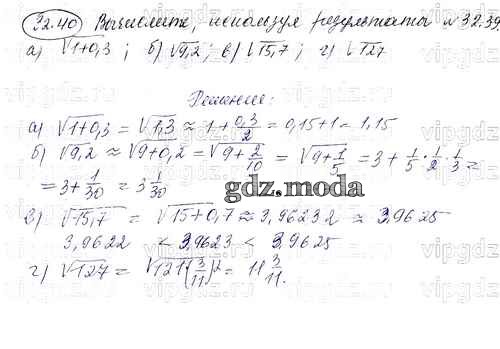 32.40) Вычислить, используя результаты №32.39
а) √1+0,3 ; б) √9,2 ; в) √15,7 ; г) √127
Решение:
а) √1+0,3 = √1,3 ≈ 1 + 0,3/2 = 0,15+1 = 1,15
б) √9,2 ≈ √9+0,2 = √9+2/10 = √9+1/5 = 3 + 1/5 · 1/2 · 1/3 =
= 3 + 1/30 = 3 1/30
gdz.moda
в) √15,7 = √15+0,7 ≈ 3,96232 ≈ 3,9625
3,9622 < 3,9623 < 3,9625
г) √127 = √121(3/11)² = 11 3/11.
vipgdz.com